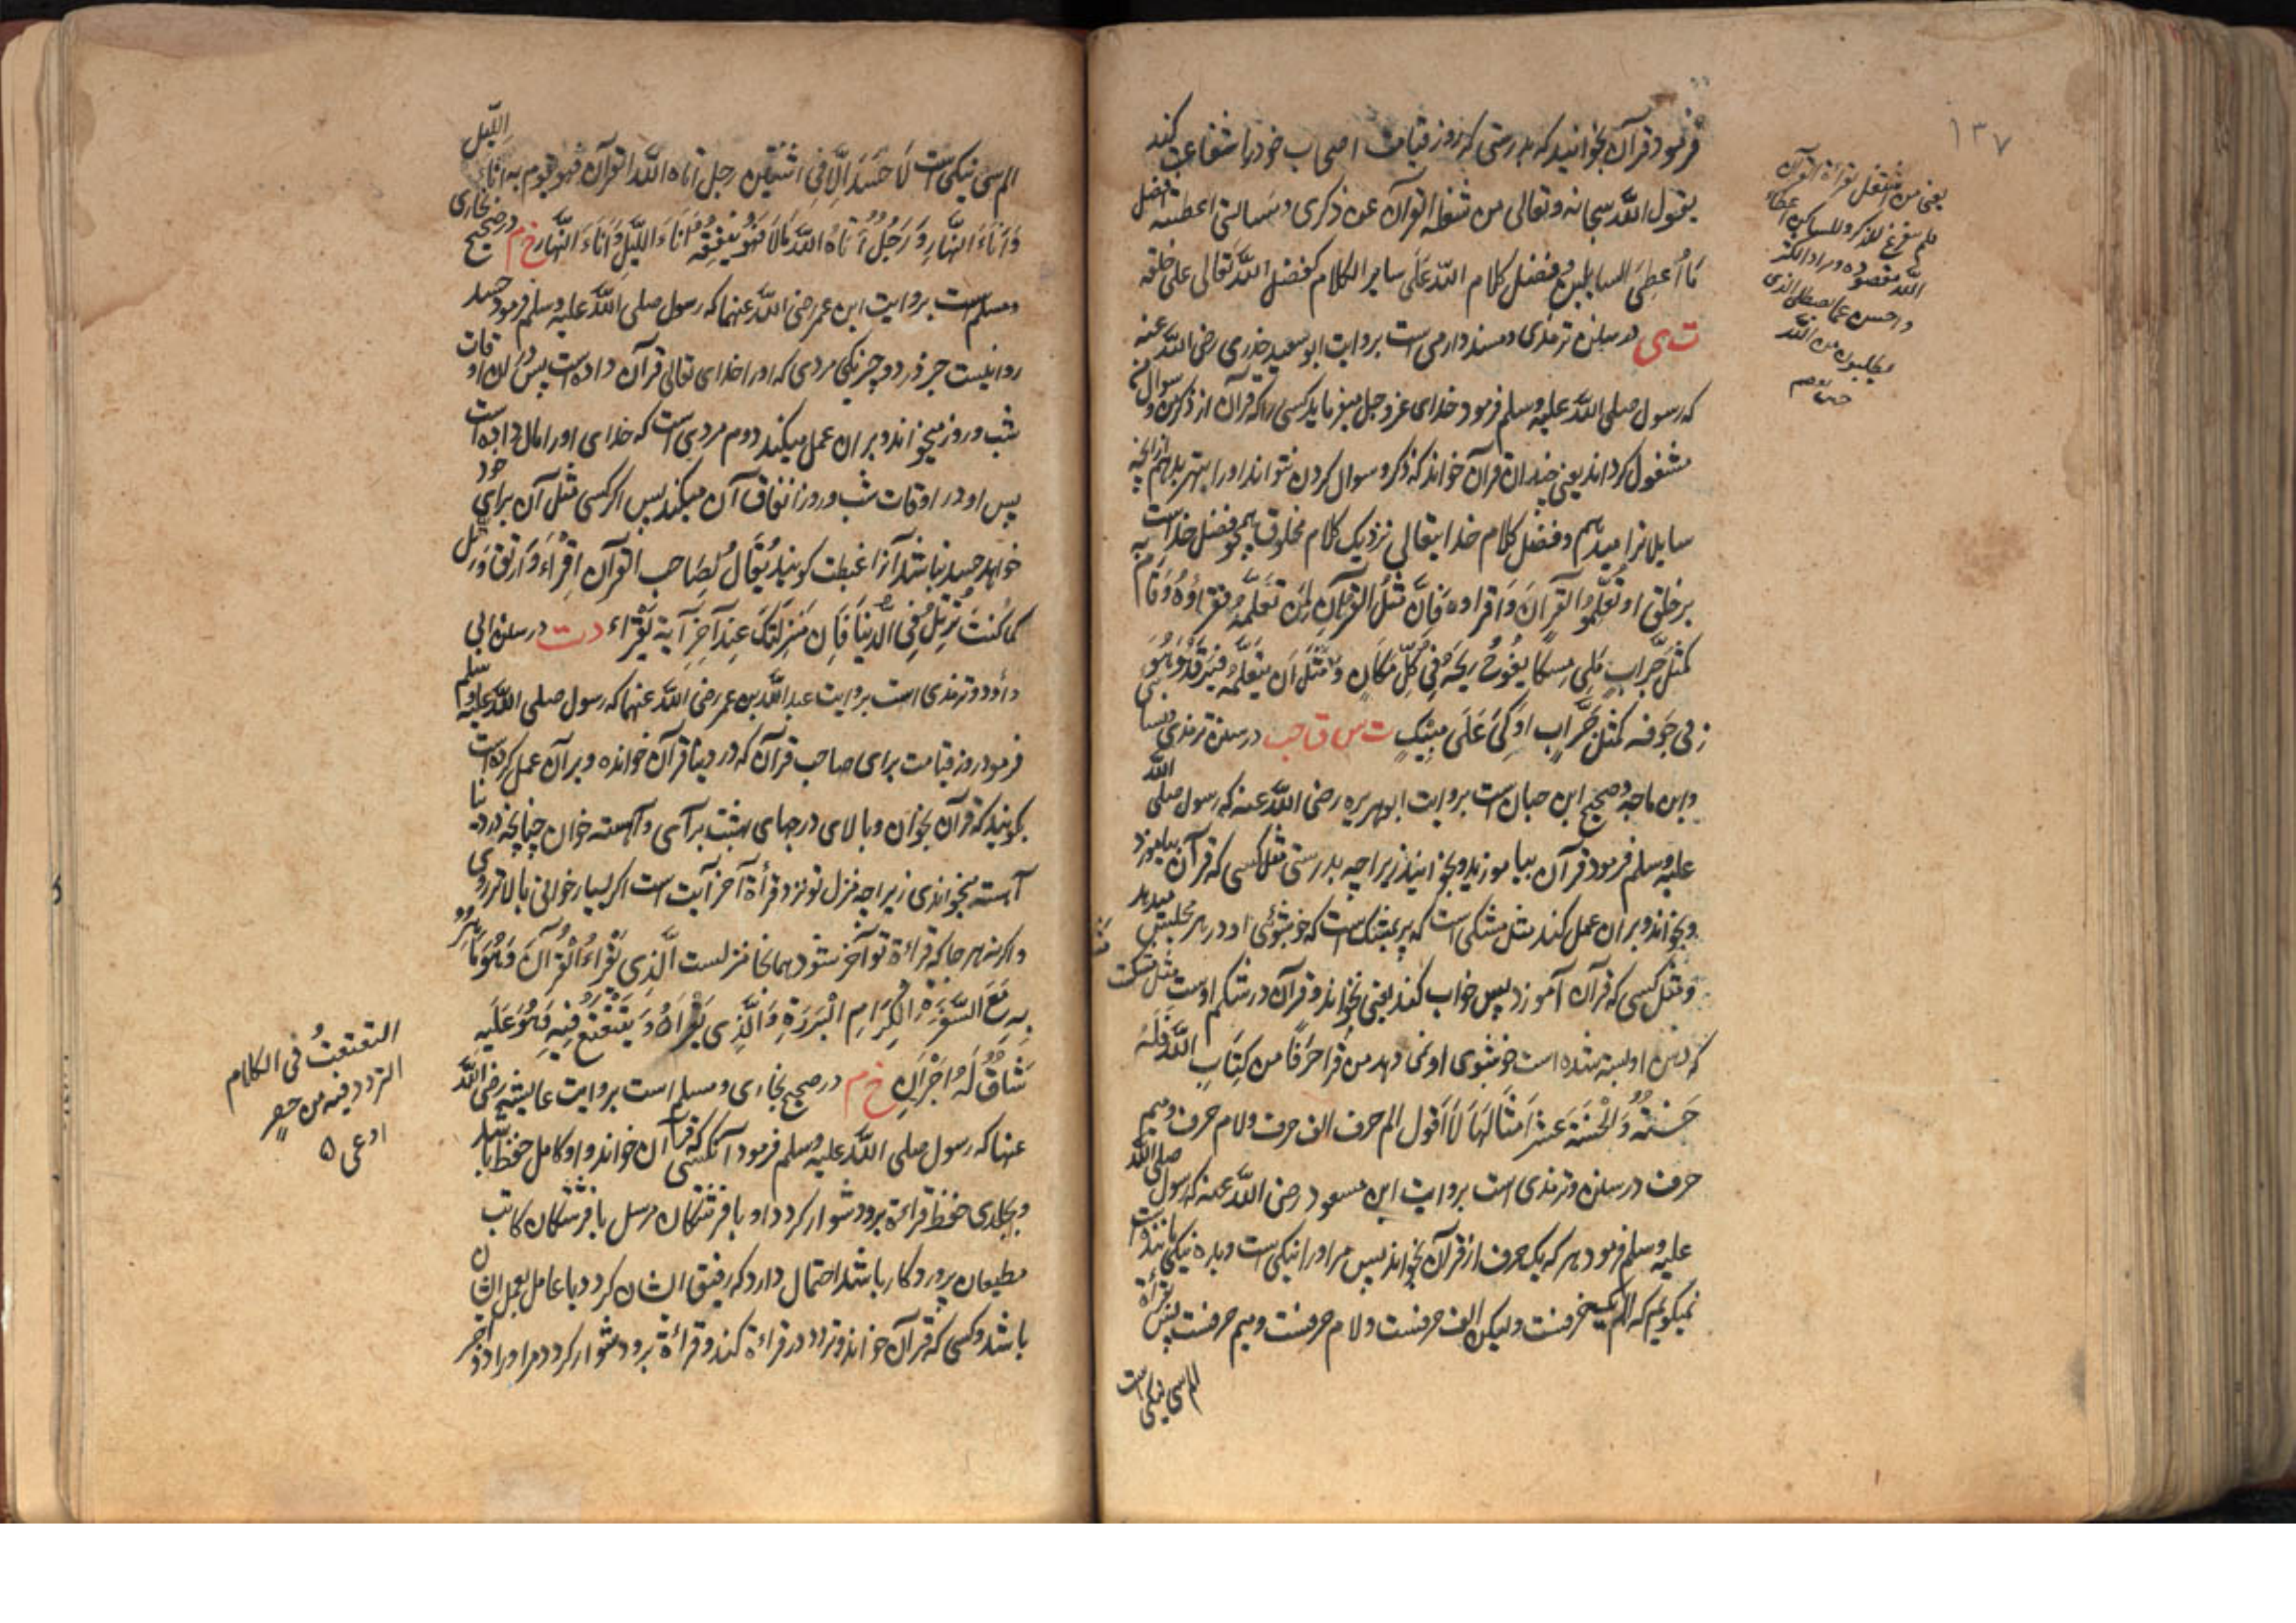 ۱۳۷
فرمود قرآن بخوانید که بدرستی که روز قیامت اصحاب خود را شفاعت کند
یقول الله سبحانه وتعالی من شغله القرآن عن ذکری ومسالتی اعطیته افضل
مَا اُعطِیَ السایلین وفضل کلام الله عَلَی سایر الکلام کفضل الله تعالی علی خلقه
ت ی در سنن ترمذی ومسند دارمی است بروایت ابو سعید خدری رضی الله عنه
که رسول صلی الله علیه وسلم فرمود خدای عز وجل میفرماید کسی را که قرآن از ذکر من و سوال من
مشغول کرداند یعنی چندان قرآن خواند که ذکر و سوال کردن نتواند اورا بهتر بدهم از انچه
سایلانرا میدهم وفضل کلام خدایتعالی نزدیک کلام مخلوق همچو فضل خداست
بر خلق او تَعَلَّمُوا القرآنَ وَاقراوه فَاِنَّ مَثَلَ القرآنِ لِمَن تَعَلَّمَهُ فقراؤهُ وَقَامَ به
کمثل جِرَابٍ مُلِیَ مِسکًا یَفُوحُ رِیحُهُ فِی کُلِّ مَکَانٍ وَمَثَلُ مَن یَتَعَلَّمُهُ فَیَرقُدُ وَهُوَ
فی جَوفه کمثل جِرَابٍ اُوکِیَ عَلَی مِسکٍ ت س ق حب در سنن ترمذی ونسائی
وابن ماجه وصحیح ابن حبان است بروایت ابو هریره رضی الله عنه که رسول صلی الله
علیه وسلم فرمود قرآن بیاموزید و بخوانید زیراچه بدرستی مثل کسی که قرآن بیاموزد
وبخواند وبران عمل کند مثل مشکی است که پر بمشک است که خوشبوئی او در هر مجلس میدمد
ومثل کسی که قرآن آموزد پس خواب کند یعنی نخواند وقرآن در شکم اوست مثل مشکست
که دهن او بسته شده است خوشبوی او نمی دهد من قرا حَرفًا من کِتَابِ الله فَلَهُ
حَسَنَةٌ وَالْحَسَنَة عَشر اَمثَالِهَا لَا اَقول الم حرف الف حرف ولام حرف ومیم
حرف در سنن وترمذی است بروایت ابن مسعود رضی الله عنه که رسول صلی الله
علیه وسلم فرمود هر که یک حرف از قرآن بخواند پس مر اورا نیکی است وبده نیکی مانندوست
نمیکویم که الم یک حرفست ولیکن الف حرفست ولام حرفست ومیم حرفست پس قرأة
الم سی نیکی است
یعنی من اشتغل بقراءة القرآن
ولم یفرغ للذکر والمساله اعطاه
الله مقصوده ومراده اکثر
واحسن مما یعطی الذی
یطلبون من الله
الم سی نیکی است لَا حَسَدَ اِلَّا فِی اثنَتَین رجل اتاه الله القرآن فهو یقوم به اناء اللیل
وَاٰنَاءَ النَّهَارِ وَرَجُلٌ اٰتَاهُ اللهُ مَالًا فَهُوَ یُنفِقُهُ اٰنَاءَ اللَّیلِ وَاٰنَاءَ النَّهَار خ م در صحیح بخاری
ومسلم است بروایت ابن عمر رضی الله عنهما که رسول صلی الله علیه وسلم فرمود حسد
روا نیست جز در دو چیز یکی مردی که اورا خدای تعالی قرآن داده است پس او در اوقات
شب وروز میخواند وبران عمل میکند دوم مردی است که خدای اورا مال داده است
پس او در اوقات شب وروز انفاق آن میکند پس اکر کسی مثل آن برای خود
خواهد حسد نباشد آنرا غبطت کویند یُقَالُ لِصَاحِب القرآن اِقرَاء وَارتق وَرَتِّل
کما کُنتَ تُرَتِّلُ فِی الدُّنیَا فَاِنَّ مَنزِلَتَکَ عِندَ آخِرِ آیة تقراء د ت در سنن ابی
داؤد وترمذی است بروایت عبد الله بن عمر رضی الله عنهما که رسول صلی الله علیه وسلم
فرمود روز قیامت برای صاحب قرآن که در دنیا قرآن خوانده وبرآن عمل کرده است
بکویند که قرآن بخوان وبالای درجهای بهشت برآی وآهسته خوان چنانچه در دنیا
آهسته میخواندی زیراچه منزل تو نزد قرأة آخر آیت است اکر بسیار خوانی بالاتر روی
واکر نه هر جا که قراءة تو آخر شود همانجا منزلست اَلَّذِی یَقْرَاءُ الْقُرْآنَ وَهُوَ مَاهِرٌ
بِهِ مَعَ السَّفَرَةِ الْکِرَامِ الْبَرَرَةِ وَالَّذِی یَقْرَاهُ وَیَتَتَعْتَعُ فِیْهِ وَهُوَ عَلَیه
شَاقٌّ لَهُ اَجْرَانِ خ م در صحیح بخاری ومسلم است بروایت عایشه رضی الله
عنها که رسول صلی الله علیه وسلم فرمود آنکسی که قرآن خواند واو کامل حفظ باشد
وبجلدی حفظ قراءة برو دشوار نکردد او با فرشتکان مرسل یا فرشتکان کاتب
مطیعان پروردکار باشد احتمال دارد که رفیق ایشان کردد یا عامل بعمل ایشان
باشد وکسی که قرآن خواند وتردد در قراءة کند وقراءة برو دشوار کردد مر اورا دو اجر
التعتعت فی الکلام
التردد فیه من حصر
او عی ۵